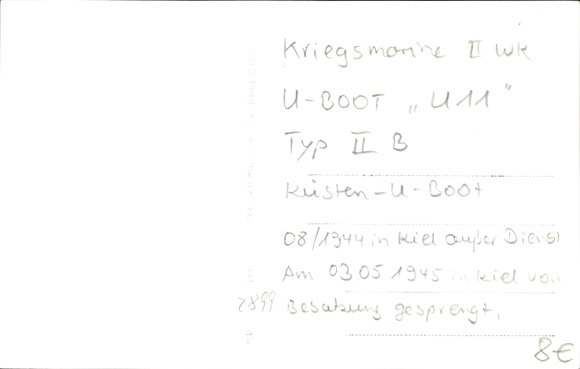 Kriegsmarine II WK
U-BOOT „U11"
Typ II B
Küsten-U-Boot
08/1944 in Kiel außer Dienst
Am 03.05.1945 in Kiel von
2899 Besatzung gesprengt.
8€